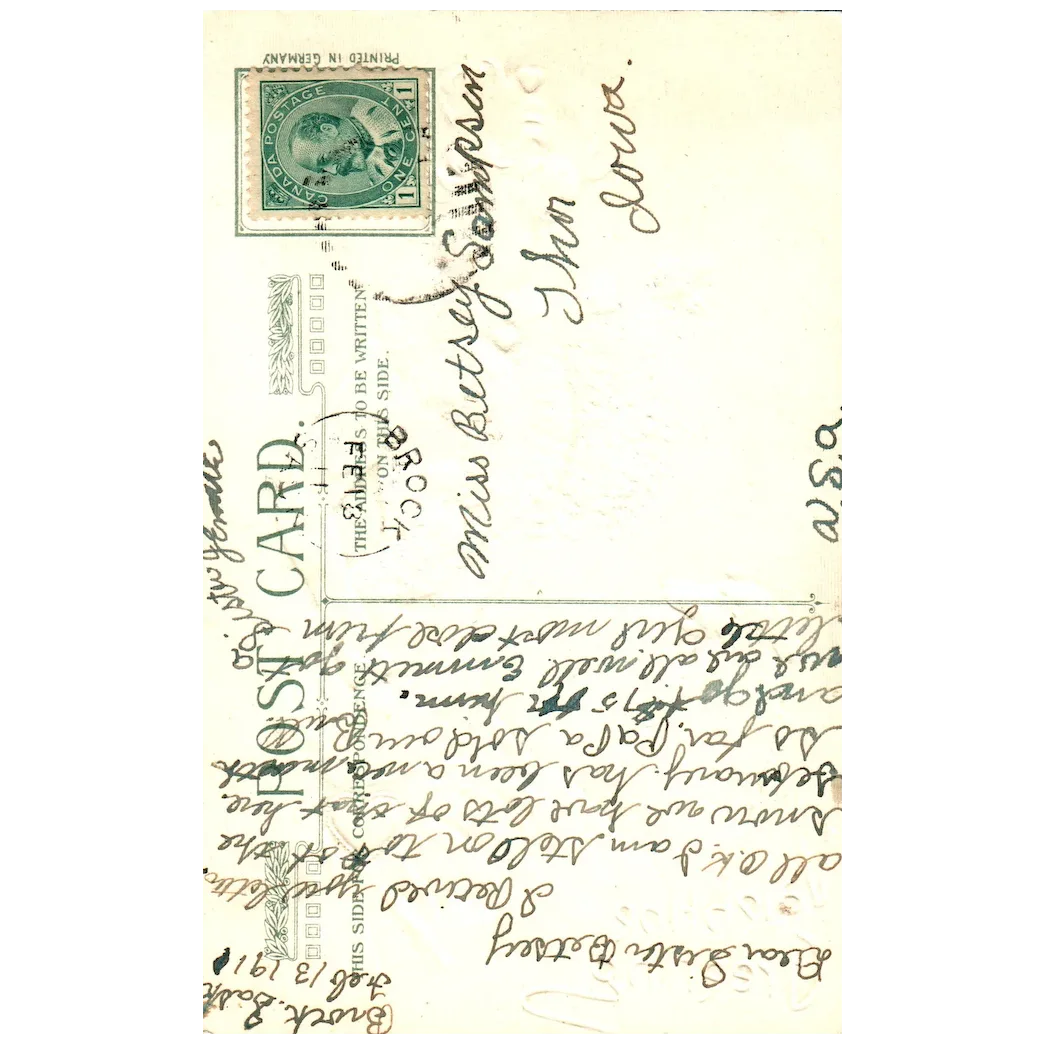 PRINTED IN GERMANY
CANADA POSTAGE
ONE CENT
1 1
POST CARD.
THE ADDRESS TO BE WRITTEN
ON THIS SIDE.
THIS SIDE FOR CORRESPONDENCE
BROCK
FE 13
11
Miss Betsey Sampson
Thor
Iowa.
USA.
Brock. Sask
Feb 13 1911
Dear Sister Betsey
I Recived your letter
all O.K. I am stold on to of the
snow we have lots of that here.
February. has been a nice month
so far. PaPa sold our Bull.
and got $75 for him.
we are all well Emmett got
little girl most close from